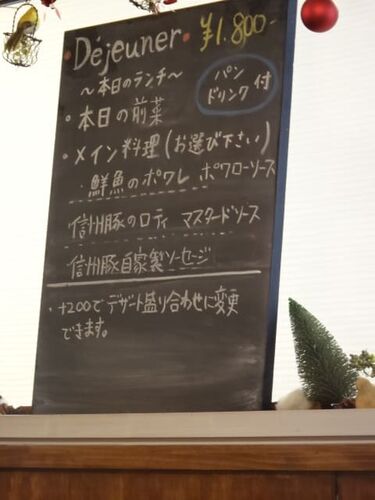 ・Déjeuner・ ¥1.800-
〜本日のランチ〜
パン
ドリンク 付
・本日の前菜
・メイン料理(お選び下さい)
・鮮魚のポワレ ポワローソース
信州豚のロティ マスタードソース
信州豚自家製ソーセージ
・+200でデザート盛り合わせに変更
できます。